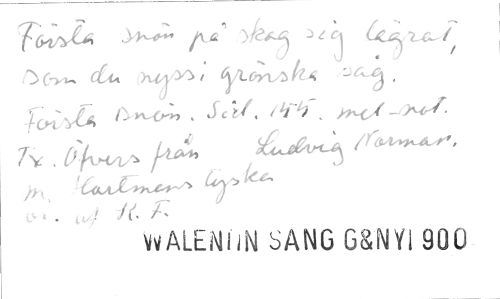 Första snön på skog sig lägrat,
som du nyss i grönska såg.
Första snön. Sid. 144. mel-not.
Tx. Öfvers från Ludvig Norman.
M. Hartmans tyska
av K. F.
WALENTIN SANG G&NYI 900